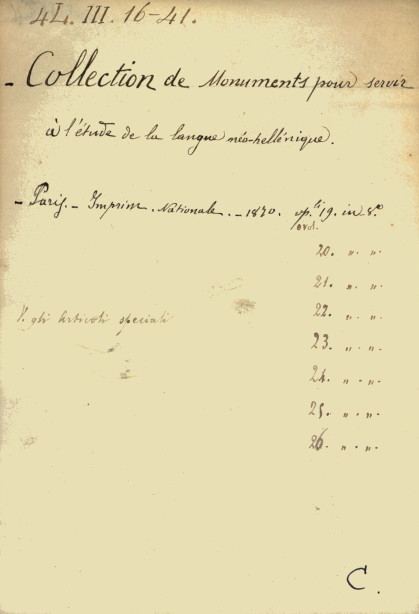 4L. III. 16-41.
- Collection de Monuments pour servir
à l'étude de la langue néo-hellénique.
- Paris. - Imprim. Nationale. - 1870. op.li 19. in 8.o
e vol.
20. " . " .
21. " . " .
22. " . " .
V. gli articoli speciali
23. " . " .
24. " . " .
25. " . " .
26. " . " .
C.